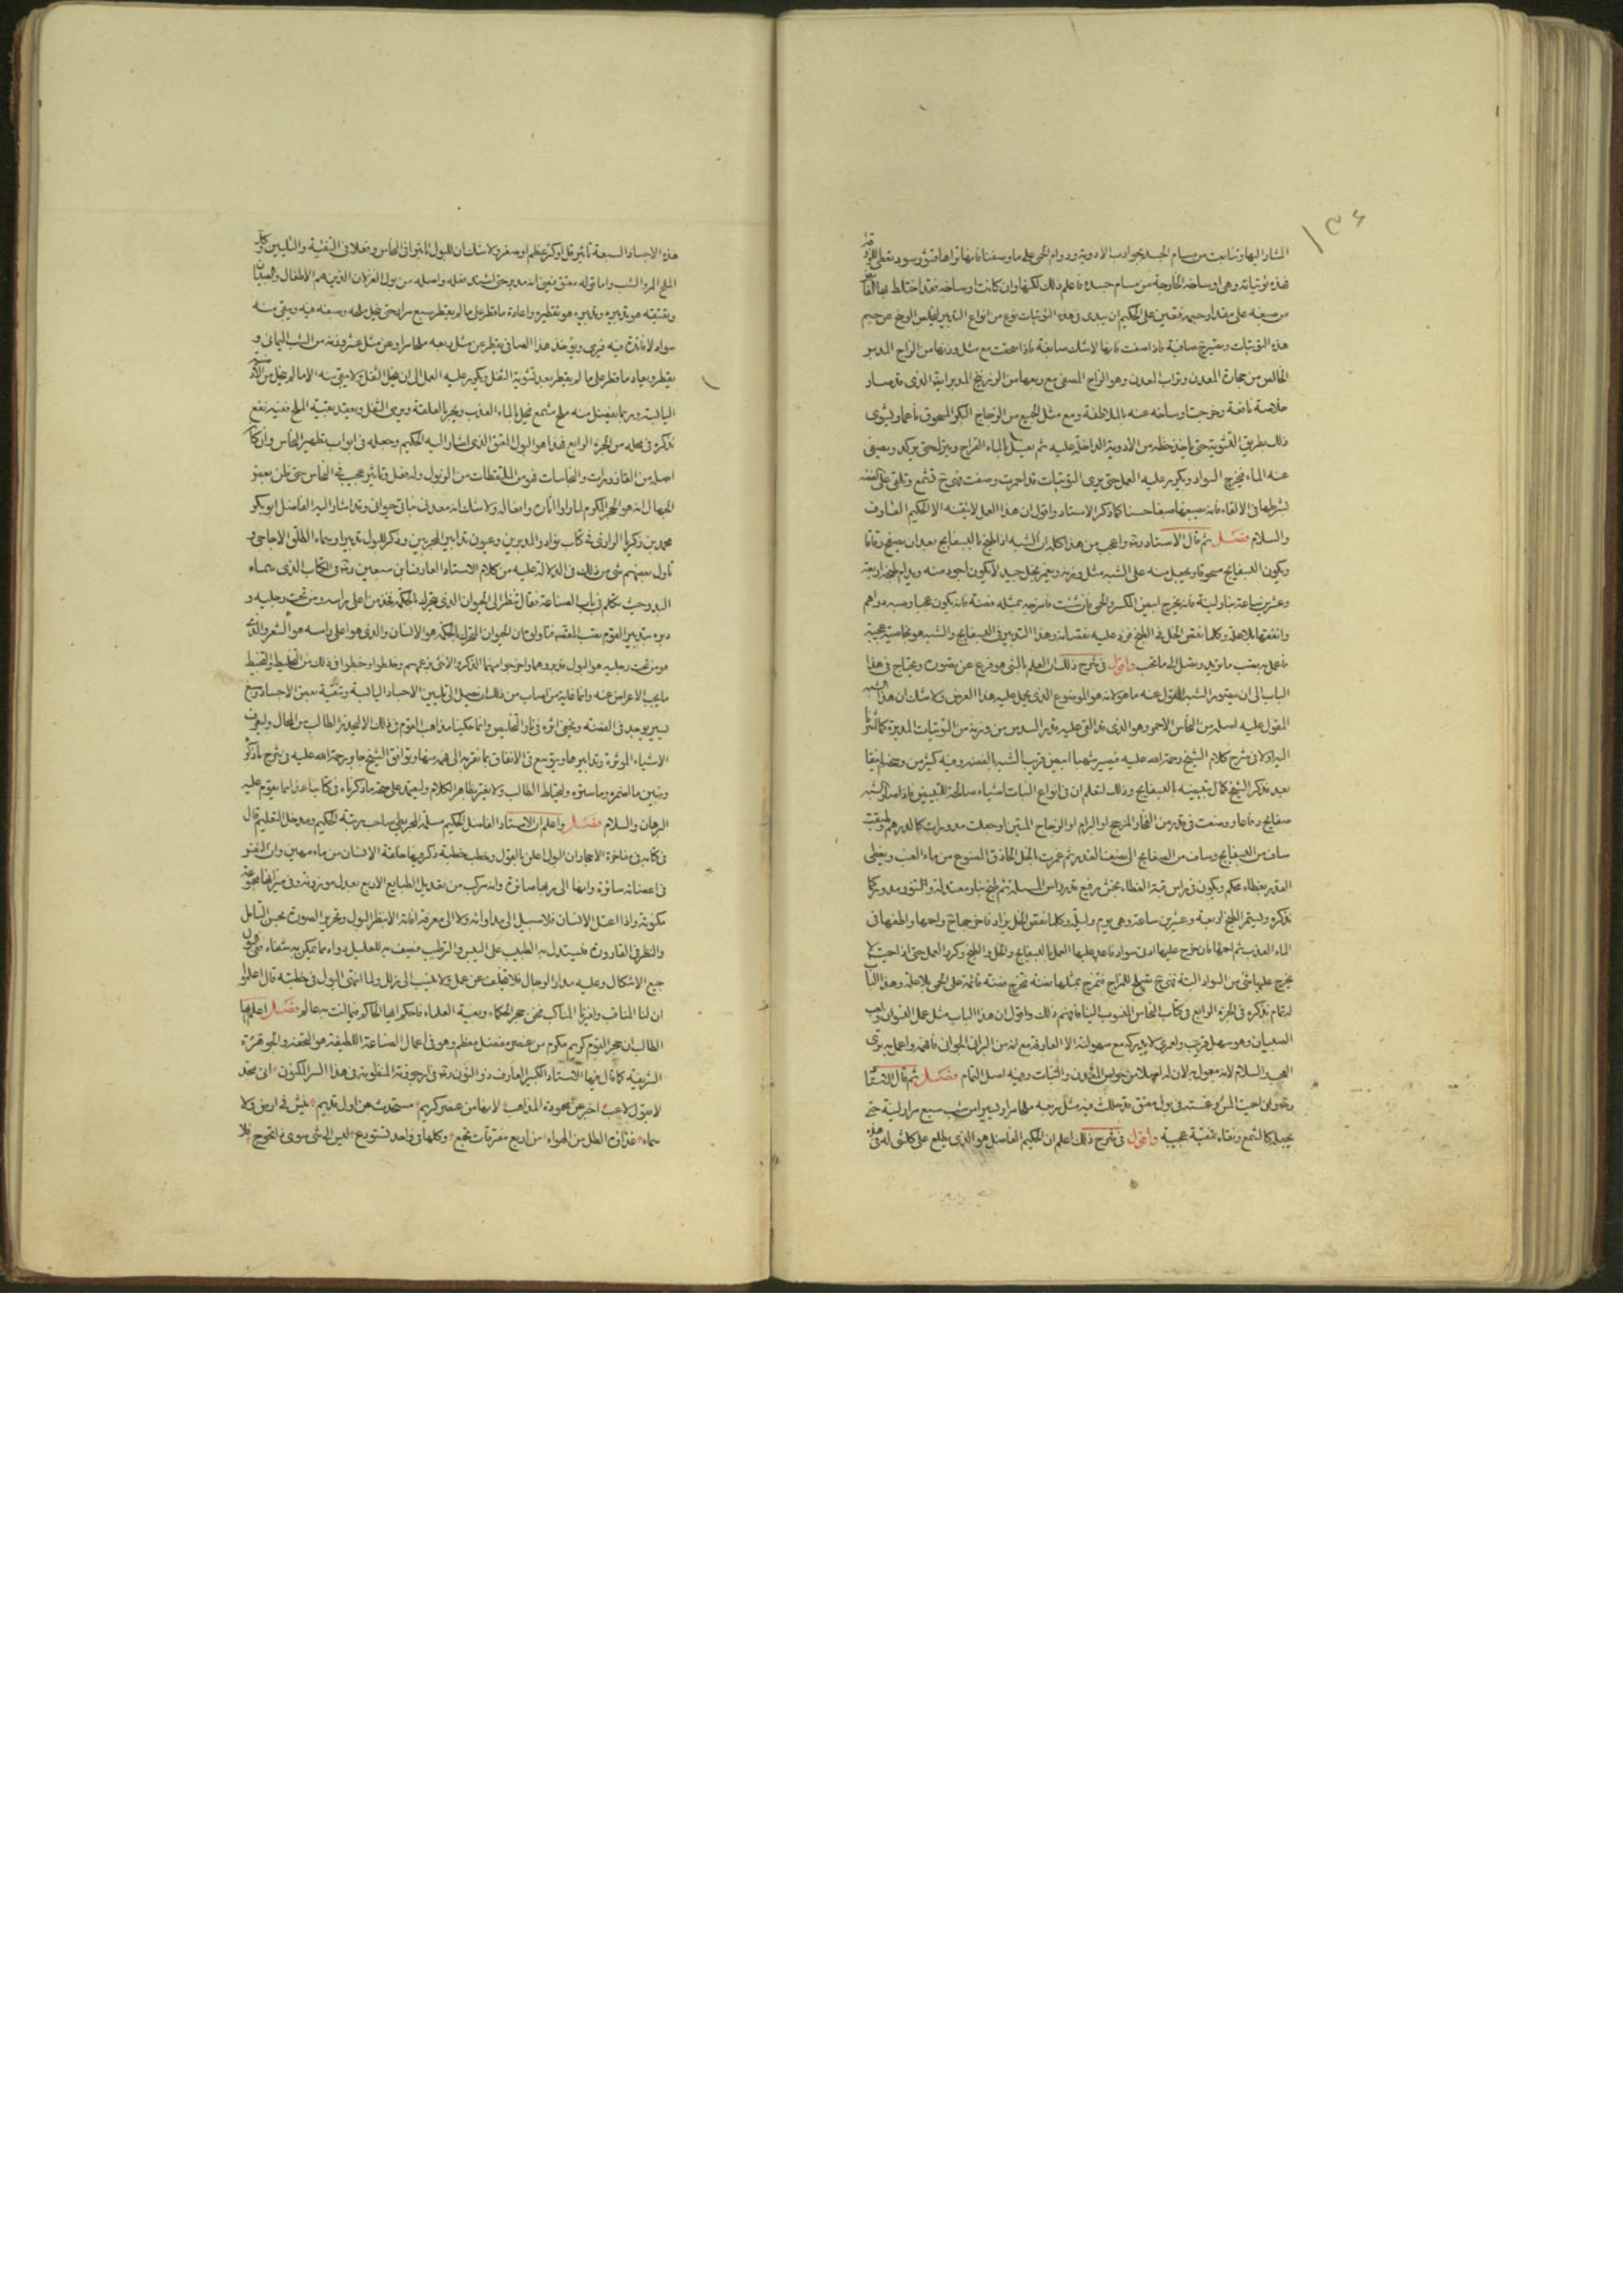 ١٣٤
المشار اليها وتتابعت من مسام الجسد بجواذب الادوية ودوام الحمى على ما وصفنا فانها تراها قشور سود تعلى
فهذه توتياته وهى اوساخه الخارجة من مسام جسده فاعلم ذلك لكنها وان كانت وساخه فقد اختلط بها
من صبغه على مقدار جسمه فتعين على الحكيم ان يبدى فى هذه التوتيات نوع من انواع التدبير ليخلص الوسخ عن جسم
هذه التوتيات ويصيرها صافية فاذا صفت فانها لاشك صابغة فاذا سحقت مع مثل وزنها من الزاج المدبر
الخالص من حجارة المعدن وتراب المعدن وهو الزاج المصفى مع ربعها من الزرنيخ المدبر ايضا الذى قد صار
خلاصة نافعة وخرجت اوساخه عنه بالملاطفة ومع مثل الجميع من الزجاج البكر المسحوق ناعما ويشوى
ذلك بطريق التشوية حتى ياخذ حظه من الادوية الداخلة عليه ثم يغسل بالماء القراح ويترك حتى يركد ويصفى
عنه الماء فيخرج السواد ويكرر عليه العمل حتى يرى التوتيات قد احمرت وصفت فهى تشمع وتلقى على الفضة
بشرطها فى الالقاء فانه يصبغها صبغا حسنا كما ذكر الاستاد واقول ان هذا العمل لا يتقنه الا الحكيم العارف
والسلام فصل ثم قال الاستاد واعجب من هذا كله ان الشبه اذا طبخ بالبسفايج بعد ان يصفح رقاقا
ويكون البسفايج مسحوقا ويجعل منه على الشبه مثل وزنه ويغمر بخل جيد لا يكون اجود منه ويدام طبخه اربعة
وعشرين ساعة بنار لينة فانه يخرج ابيض المكسر والحمى فان شئت فامزجه بمثله فضة فانه يكون عجبا وصبره دراهم
وانفقها بلا علة وكلما نقص الخل فى الطبخ فزد عليه نقصانه وهذا التدبير فى البسفايج والشبه هو بخاصية عجيبة
فاعمل به تصب ما تريد وتصل الى ما تحب واقول فى شرح ذلك ان العلم بالشئ هو فرع عن تصوره ويحتاج فى هذا
الباب الى ان يتصور الشبه المقول عنه ما هو لانه هو الموضوع الذى يحمل عليه هذا العرض ولا شك ان هذا الشبه
المقول عليه اصله من النحاس الاحمر وهو الذى قد القى عليه قدر السدس من وزنه من التوتيات المدبرة كما اشرنا
اليه اولا فى شرح كلام الشيخ رحمة الله عليه فيصير شبها ابيض قريب الشبه بالفضة وفيه كثير من وصفها
بعد فذكر الشيخ كمال تبييضه بالبسفايج وذلك لتعلم ان فى انواع النبات اشياء صالحة للتبييض فاذا صار الشبه
صفايح رقاعا ووضعت فى قدر من الفخار المزجج او البرام او الزجاج المتين او جعلت مدورات كالدراهم
ساف من البسفايج وساف من الصفايح الى نصف القدر ثم غمرت بالخل الحاذق المصنوع من ماء العنب ويغطى
القدر بغطاء محكم ويكون فى راس قبة الغطاء بخش رفيع قدر راس المسلة ثم طبخ بنار معتدلة والتنور مدور كما
نذكره ويستمر الطبخ اربعة وعشرين ساعة وهى يوم وليلة وكلما نقص الخل يزاد فاخرجها واحمها واطفها فى
الماء العذب ثم احمها فان خرج عليها ادنى سواد فاعد عليها العمل بالبسفايج والخل والطبخ وكرر العمل حتى اذا حميت لا
يخرج عليها شئ من السواد البتة فهى تصلح للمزاج فتمزج بمثلها فضة تخرج فضة قائمة على الحمى بلا علة وهذا
لتمام نذكره فى الجزء الرابع فى كتاب النحاس المنسوب الينا فافهم ذلك واقول ان هذا الباب مثل عمل النسوان ولعب
الصبيان وهو سهل قريب ولعمرى لا يدركه مع سهولته الا العارف مع انه من البرانى الجوانى فافهمه واعمل به ترى
العجب والسلام لانه معمول به لان له اصلا من خواص المعدن والنبات وفيه اصل التمام فصل ثم قال
وغمسته فى بول معتق قد حللت فيه مثل ربعه ملحا مرا وليموا من شب سبع مرار لينه حتى
يجعله كالشمع ونقاه تنقية عجيبة واقول فى شرح ذلك اعلم ان الحكيم الفاضل هو الذى يطلع على كل شئ له فى
هذه الاجساد السبعة تاثير قل او كثر عظم او صغر ولا شك ان للبول تاثيرا فى النحاس وفعلا فى التنقية والتليين
الملح المر والشب واما قوله معتق فيعنى انه مدبر حتى اشتد فعله واصله من بول الغزلان الذين هم الاطفال والصبيان
وتعتيقه هو تدبيره وتدبيره هو تقطيره واعادة ما قطر على ما لم يقطر سبع مرار حتى ينحل ملحه وصبغه فيه ويبقى منه
سواد لا فائدة فيه فيرمى ويؤخذ هذا الصافى يقطر عن مثل ربعه ملحا مرا وعن مثل عشر وزنه من الشب اليمانى
يقطر ويعاد ما قطر على ما لم يقطر بعد تشوية الثفل ويكرر عليه العمل الى ان ينحل الثفل ولا يبقى منه الا ما لم ينحل من
اليابسة وربما يفضل منه ملح مشمع فيحل بالماء العذب ويجر بالعلقة ويرمى الثفل ويعقد بقية الملح ففيه نفع
نذكره فى محله من الجزء الرابع فهذا هو البول المعتق الذى اشار اليه الحكيم وجعله فى ابواب تطهير النحاس وان كان
اصله من القاذورات والنجاسات فهو من الملتقطات من الزبول وله فعل وتاثير عجيب فى النحاس حتى ظن بعض
الجهال انه هو الحجر المكرم لما راوا اثاره وافعاله ولا شك انه معدنى نباتى حيوانى وقد اشار اليه الفاضل ابو بكر
محمد بن زكريا الرازى فى كتاب نوادر المدبرين وعيون تدابير المجربين وذكر للبول تدبيرا وسماه الطلق الاجاجى و
تاول بعضهم شئ من ذلك فى الدلالة عليه من كلام الاستاد العارف ابن سبعين فى الكتاب الذى سماه
البدو حيث تكلم فى باب الصناعة فقال تنظر الى الحيوان الذى يقبل الحكمة فخذ من اعلى راسه ومن تحت رجليه و
دبره بتدبير القوم تصب المقصد فتاول ان الحيوان القابل الحكمة هو الانسان والذى هو اعلى راسه هو الشعر والذى
هو من تحت رجليه هو البول فدبروهما واخرجوا منهما الذكر والانثى بزعمهم وخلطوا وخبطوا فى ذلك من التخليط والتخبيط
ما يجب الاعراض عنه وانما غاية من اصاب من ذلك ان يصل الى تليين الاجساد اليابسة وتنقية بعض الاجساد وصبغ
يسير يوجد فى الفضة ويمحى اثره فى نار التخليص وانما حكينا مذاهب القوم فى ذلك الا ليحذر الطالب من المحال وليعرف
الاشياء الموثرة وتدابيرها ويتوسع فى الانفاق بما نقربه الى فهمه منها ويوافق الشيخ جابر رحمة الله عليه فى شرح ما ذكره
ونبين ما اضمره وما ستره وليحتاط الطالب ولا يغتر بظاهر الكلام وليعتمد على صحة ما ذكرناه فى كتابنا هذا مما يقوم عليه
البرهان والسلام فصل واعلم ان الاستاد الفاضل الحكيم مسلمة المجريطى صاحب رتبة الحكيم ومدخل التعليم قال
فى كتابه فى مفاخرة الاحجار ان البول اعلن بالقول وخطب خطبة ذكر فيها خلقة الانسان من ماء مهين وان النفس
فى اعضائه سائرة وانها الى ربها صائرة وانه مركب من تعديل الطبايع الاربع بعدل موزونة وفى ميزانها مجموعة
مكنونة واذا اعتل الانسان فلا سبيل الى مداواته ولا الى معرفة افاته الا بنظر البول وتحرير الصورة بحسن التامل
والنظر فى القارورة فليستدل به الطبيب على اليبس والترطيب فيصف به للعليل دواء ما يمكن به شفاء
جميع الاشكال وعليه مدار الرجال فلا يخلف عن عمل ولا ينسب الى زلل ولما انتهى البول فى خطبته قال اعلموا
ان لنا المناقب واقرنا المناكب فنحن حجر الحكماء وبغية العلماء فاحكم ايها الحاكم فيما انت به عالم فصل اعلم ايها
الطالب ان حجر القوم كريم مكرم من عنصره مفضل معظم وهو فى اعمال الصناعة اللطيفة هو التحفة والجوهرة
الشريفة كما قال فيها الاستاد الكبير العارف ذو النون فى ارجوزته المنظومة فى هذا السر المكنون انى محقد
لا بقول لاعب اخبر عن محمودة المذاهب لا بها من عنصر كريم مستحدث من اول قديم ينبش فى ارض ولا
سماء غذاؤه الطل من الهواء من اربع مفترقات تجمع وكلها فى واحد تستودع ليس الى شئ سوى ذا تحوج فلا